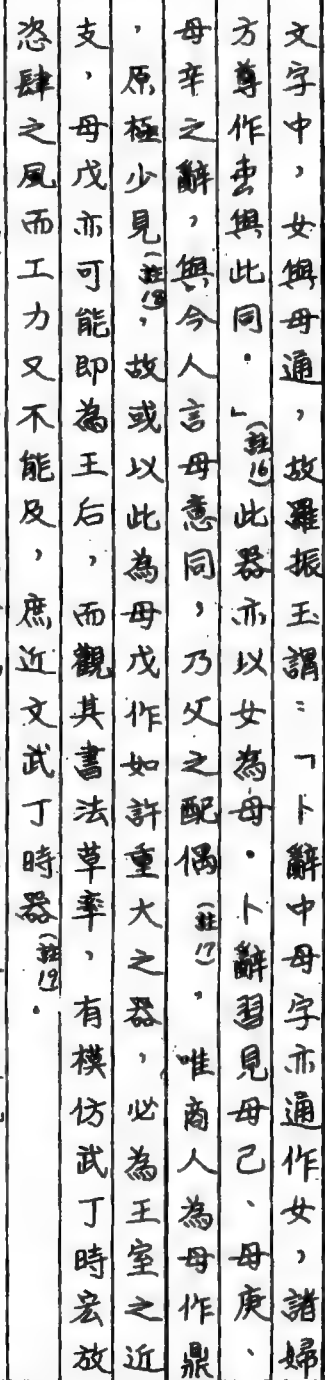 文字中，女與母通，故羅振玉謂：「卜辭中母字亦通作女，諸婦
方尊作𡚬與此同。」(註16)此器亦以女為母。卜辭習見母己、母庚、
母辛之辭，與今人言母意同，乃父之配偶(註17)，唯商人為母作鼎
，原極少見(註18)，故或以此為母戊作如許重大之器，必為王室之近
支，母戊亦可能即為王后，而觀其書法草率，有模仿武丁時宏放
恣肆之風而工力又不能及，庶近文武丁時器(註19)。